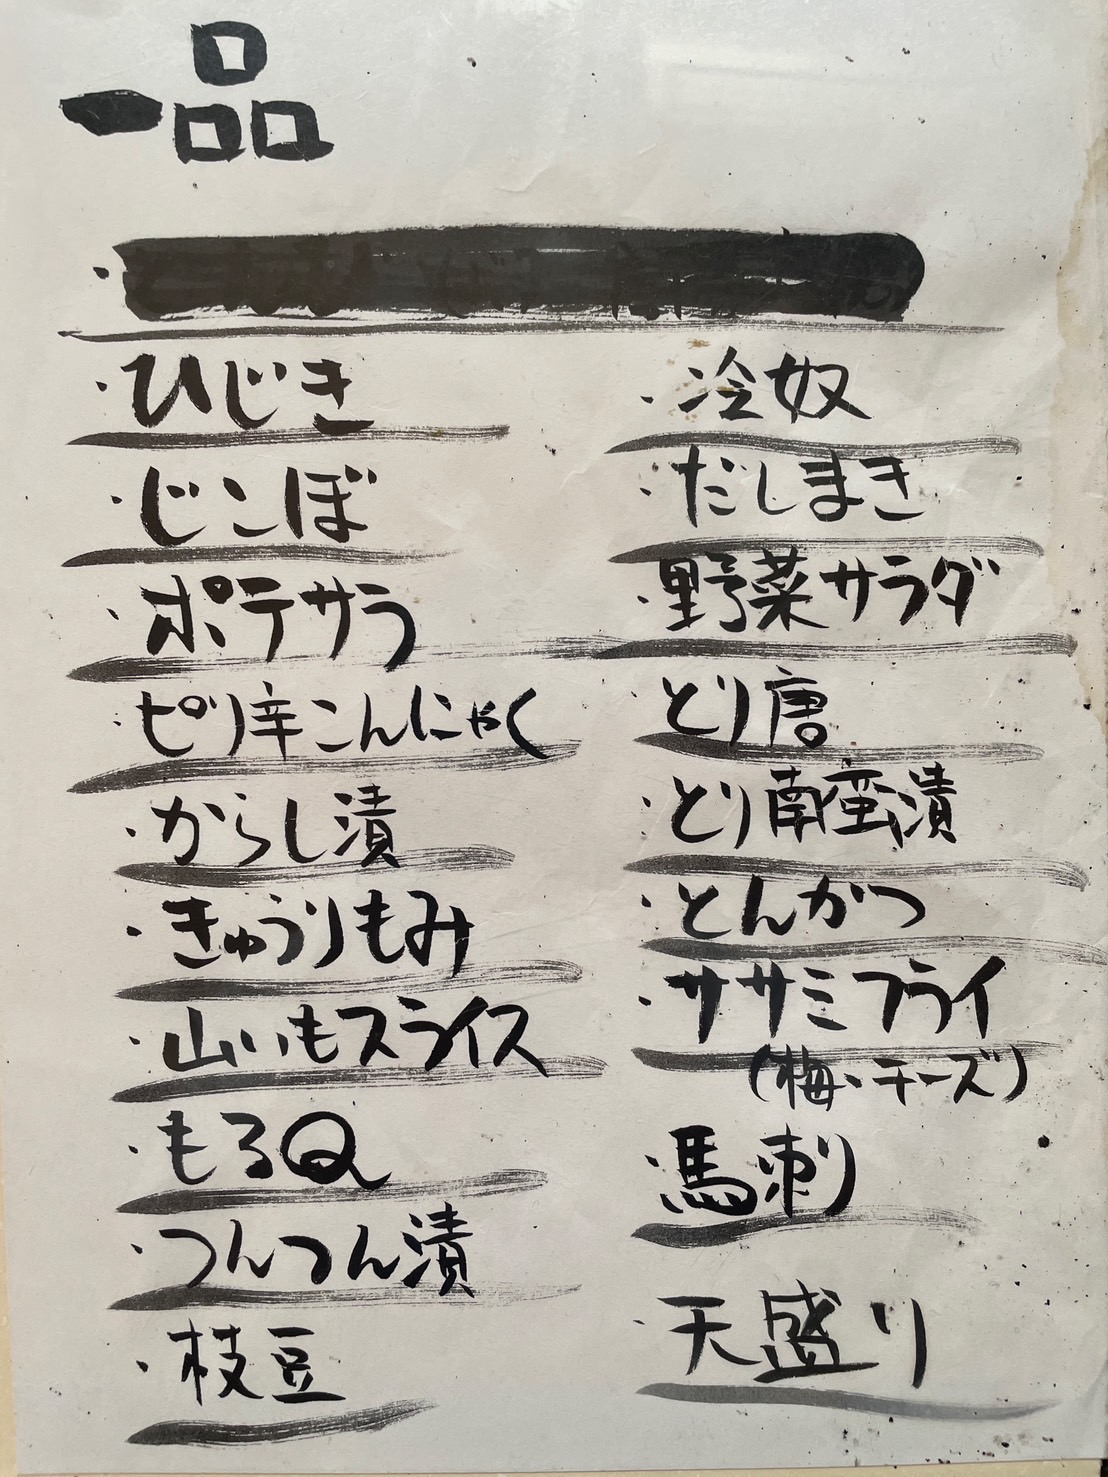 一品
・ひじき
・じこぼ
・ポテサラ
・ピリ辛こんにゃく
・からし漬
・きゅうりもみ
・山いもスライス
・もろQ
・つんつん漬
・枝豆
・冷奴
・だしまき
・野菜サラダ
・とり唐
・とり南蛮漬
・とんかつ
・ササミフライ
(梅・チーズ)
・馬刺
・天盛り